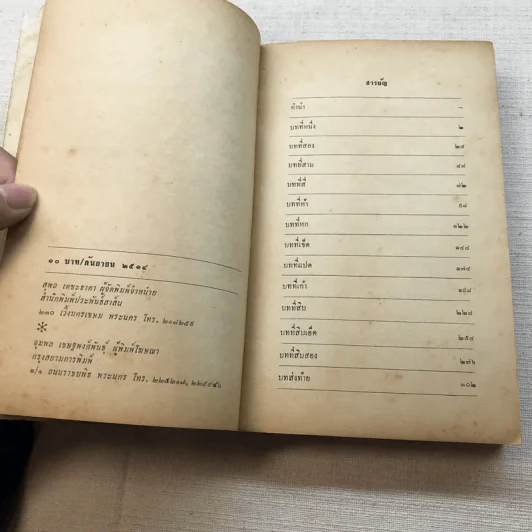 ๑๐ บาท/กันยายน ๒๕๑๔
สุพล เตชะธาดา ผู้จัดพิมพ์จำหน่าย
สำนักพิมพ์ประพันธ์สาส์น
๒๓๐ เวิ้งนครเขษม พระนคร โทร. ๒๑๗๒๕๙
*
ชุมพล เชษฐพงศ์พันธุ์ ผู้พิมพ์โฆษณา
กรุงสยามการพิมพ์
๒/๑ ถนนราชบพิธ พระนคร โทร.
สารบัญ
คำนำ –
บทที่หนึ่ง ๒
บทที่สอง ๒๙
บทที่สาม
บทที่สี่
บทที่ห้า
บทที่หก ๑๒๒
บทที่เจ็ด
บทที่แปด
บทที่เก้า
บทที่สิบ
บทที่สิบเอ็ด
บทที่สิบสอง ๒๗๖
บทส่งท้าย ๓๐๒